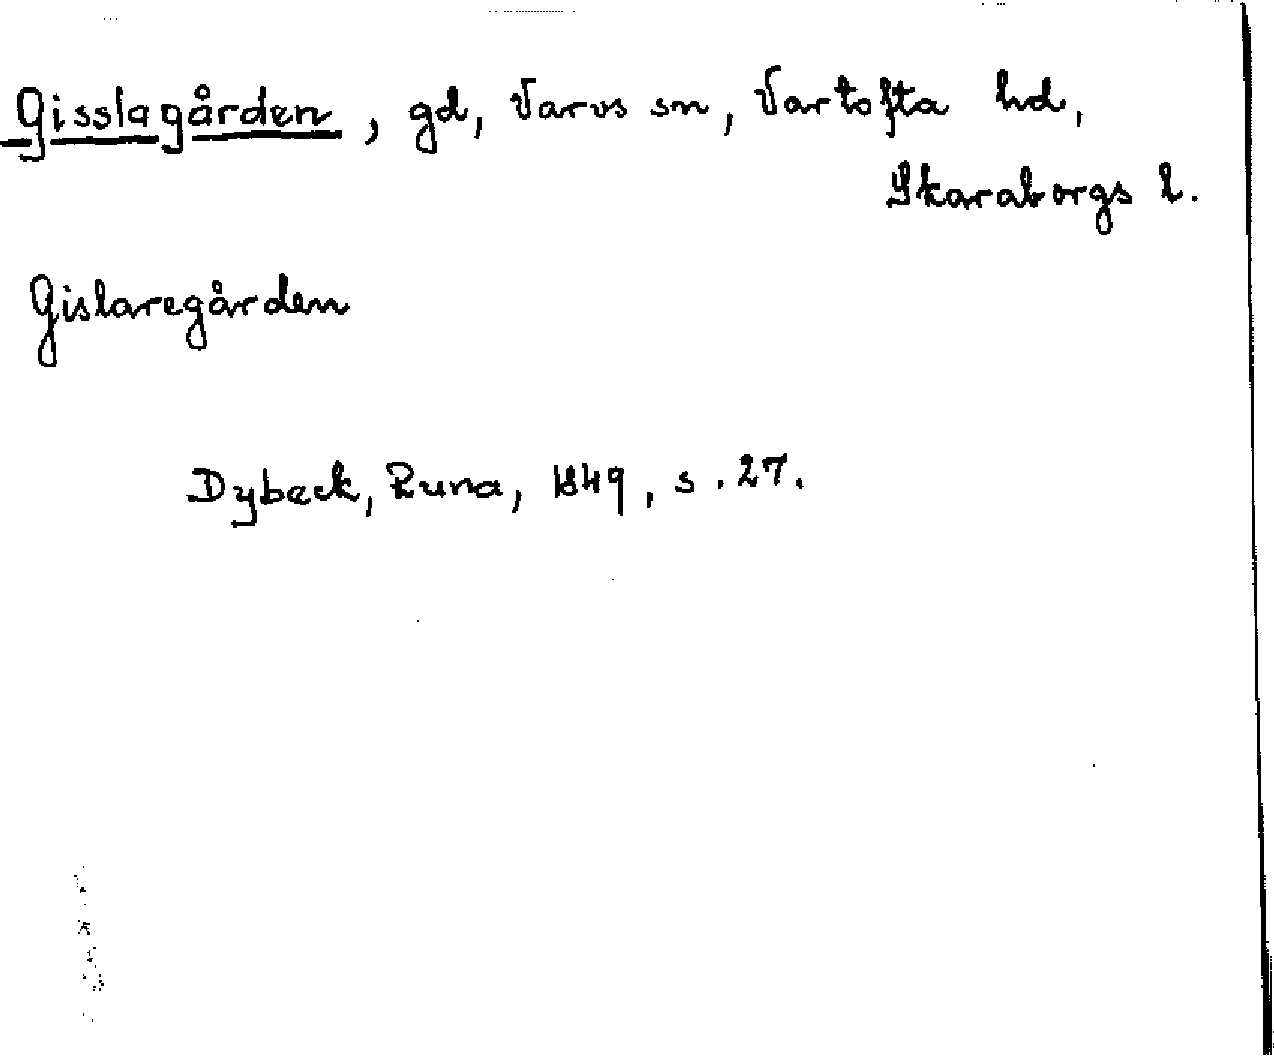 Gisslagården, gd, Varvs sn, Vartofta hd,
Skaraborgs l.
Gislaregården
Dybeck, Runa, 1849, s. 27.